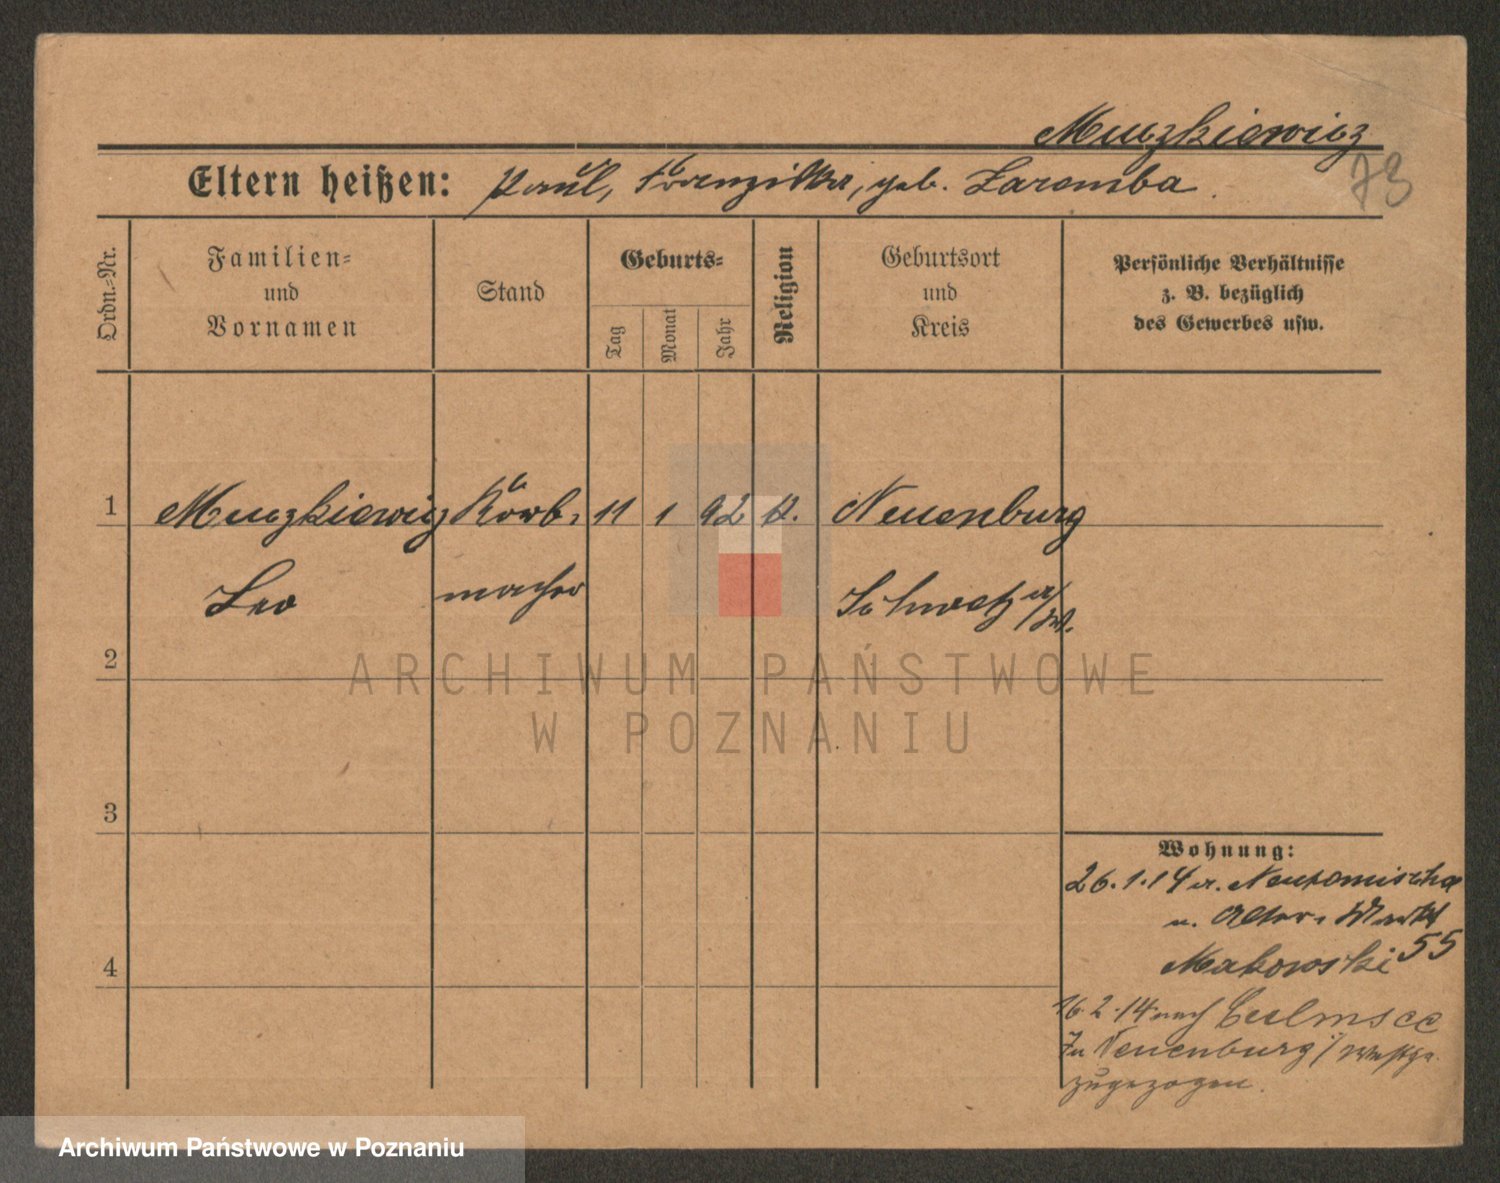 Muczkiewicz
73
Eltern heißen: Paul, Franziska, geb. Zaremba.
Ordn.-Nr.
Familien-
und
Vornamen
Stand
Geburts-
Tag
Monat
Jahr
Religion
Geburtsort
und
Kreis
Persönliche Verhältnisse
z. B. bezüglich
des Gewerbes usw.
1 Muczkiewicz Korb- 11 1 92 k. Neuenburg
Leo macher Schwetz a/W.
2
ARCHIWUM PAŃSTWOWE
W POZNANIU
3
Wohnung:
26.1.14 a. Neutomischel
n. Alter Markt
55
4 Makowski
16.2.14 nach Culmsee
Zu Neuenburg i/ Westpr.
zugezogen.
Archiwum Państwowe w Poznaniu